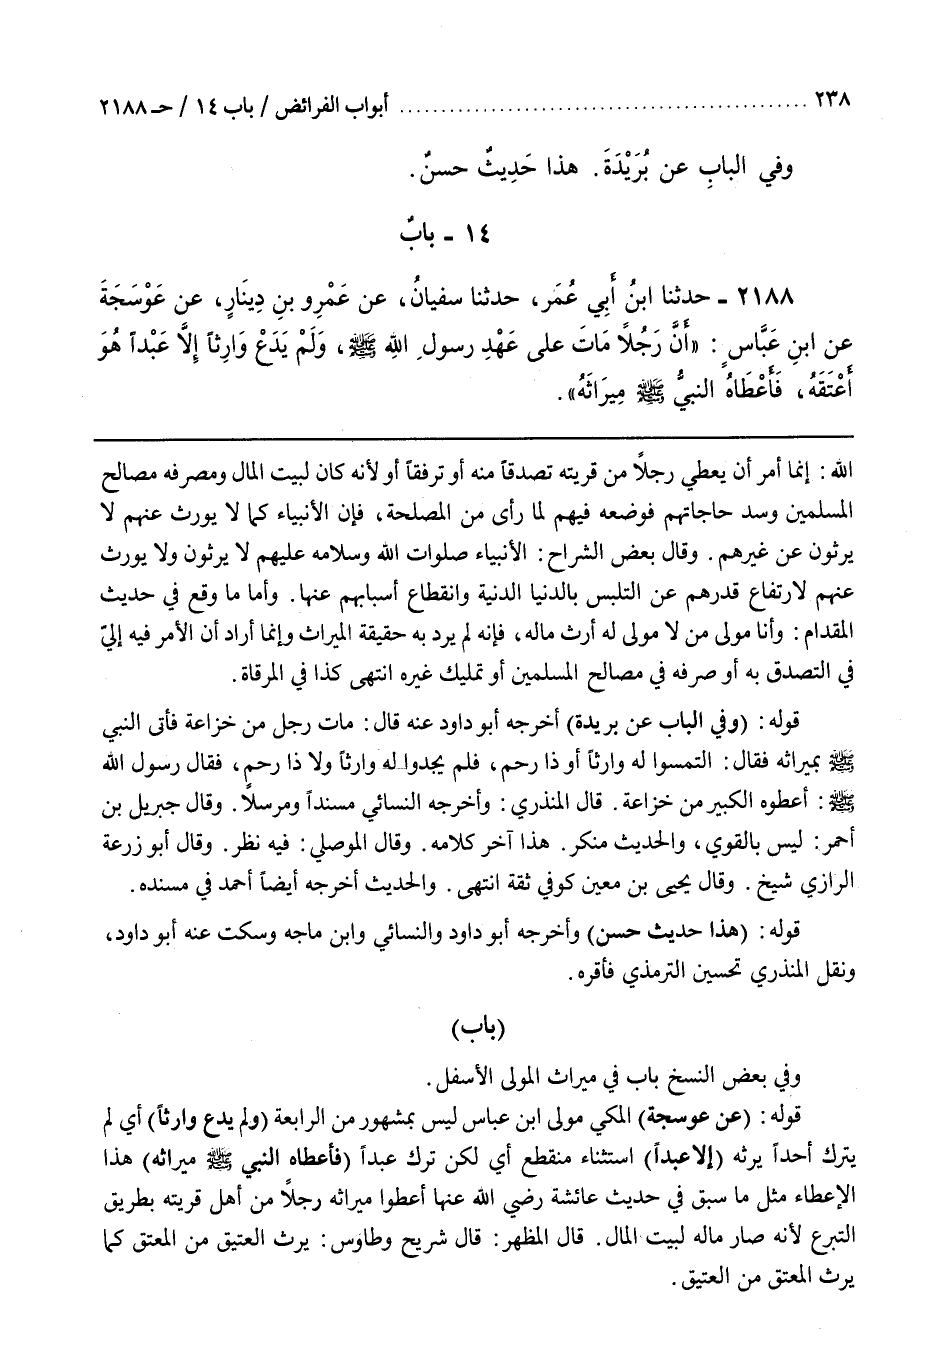 ٢٣٨ ................................................ أبواب الفرائض / باب ١٤ / حـ ٢١٨٨
وفي البابِ عن بُرَيْدَةَ. هذا حَدِيثٌ حسنٌ.
١٤ - بابٌ
٢١٨٨ - حدثنا ابنُ أَبِي عُمَر، حدثنا سفيانُ، عن عَمْرِو بنِ دِينَارٍ، عن عَوْسَجَةَ
عن ابنِ عَبَّاسٍ: «أَنَّ رَجُلاً مَاتَ على عَهْدِ رسولِ اللهِ ﷺ، وَلَمْ يَدَعْ وَارِثاً إِلاَّ عَبْداً هُوَ
أَعْتَقَهُ، فَأَعْطَاهُ النبيُّ ﷺ مِيرَاثَهُ».
الله: إنما أمر أن يعطي رجلاً من قريته تصدقاً منه أو ترفقاً أو لأنه كان لبيت المال ومصرفه مصالح
المسلمين وسد حاجاتهم فوضعه فيهم لما رأى من المصلحة، فإن الأنبياء كما لا يورث عنهم لا
يرثون عن غيرهم. وقال بعض الشراح: الأنبياء صلوات الله وسلامه عليهم لا يرثون ولا يورث
عنهم لارتفاع قدرهم عن التلبس بالدنيا الدنية وانقطاع أسبابهم عنها. وأما ما وقع في حديث
المقدام: وأنا مولى من لا مولى له أرث ماله، فإنه لم يرد به حقيقة الميراث وإنما أراد أن الأمر فيه إليّ
في التصدق به أو صرفه في مصالح المسلمين أو تمليك غيره انتهى كذا في المرقاة.
قوله: (وفي الباب عن بريدة) أخرجه أبو داود عنه قال: مات رجل من خزاعة فأتى النبي
ﷺ بميراثه فقال: التمسوا له وارثاً أو ذا رحم، فلم يجدوا له وارثاً ولا ذا رحم، فقال رسول الله
ﷺ: أعطوه الكبير من خزاعة. قال المنذري: وأخرجه النسائي مسنداً ومرسلاً. وقال جبريل بن
أحمر: ليس بالقوي، والحديث منكر. هذا آخر كلامه. وقال الموصلي: فيه نظر. وقال أبو زرعة
الرازي شيخ. وقال يحيى بن معين كوفي ثقة انتهى. والحديث أخرجه أيضاً أحمد في مسنده.
قوله: (هذا حديث حسن) وأخرجه أبو داود والنسائي وابن ماجه وسكت عنه أبو داود،
ونقل المنذري تحسين الترمذي فأقره.
(باب)
وفي بعض النسخ باب في ميراث المولى الأسفل.
قوله: (عن عوسجة) المكي مولى ابن عباس ليس بمشهور من الرابعة (ولم يدع وارثاً) أي لم
يترك أحداً يرثه (إلا عبداً) استثناء منقطع أي لكن ترك عبداً (فأعطاه النبي ﷺ ميراثه) هذا
الإعطاء مثل ما سبق في حديث عائشة رضي الله عنها أعطوا ميراثه رجلاً من أهل قريته بطريق
التبرع لأنه صار ماله لبيت المال. قال المظهر: قال شريح وطاوس: يرث العتيق من المعتق كما
يرث المعتق من العتيق.